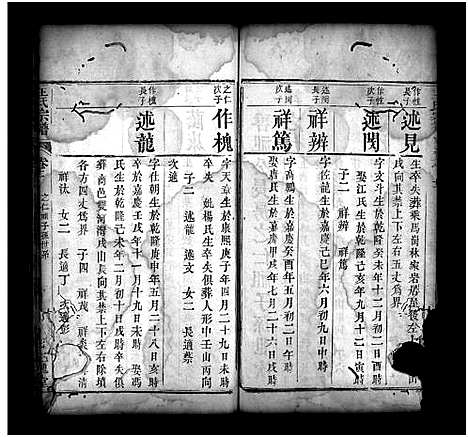 作樻次子
述見
生卒失葬乘馬崗林家岩
戌向其禁上下左右五丈爲界
作樻長子
述閔
字文斗生於乾隆癸未年十二月初二日寅時
娶江氏生於乾隆己亥年九月十二日寅時
子二 祥辨 祥篤
述閔長子
祥辨
字佐龍生於嘉慶己巳年六月初九日申時
述閔次子
祥篤
字 生於嘉慶癸酉年五月初二日午時
娶 氏生於嘉慶丁丑年二月二十六日戌時
之仁次子
作槐
字天章生於康熙庚子年四月二十九日未時
卒失 妣楊氏生卒失俱葬人形中壬山丙向
子二 述龍 述文 女二 長適蔡
次適
作槐長子
述龍
字仕朝生於乾隆庚申年五月二十八日亥時
卒於嘉慶壬戌年十一月十九日未時 娶馮
氏生於乾隆己未年二月初十日戌時卒失俱
葬商邑 河灣戌山辰向其禁上下左右除墳
各方四丈爲界 子四 祥茂 祥
祥汰 女二 長適丁 次適彭
王氏宗譜
卷